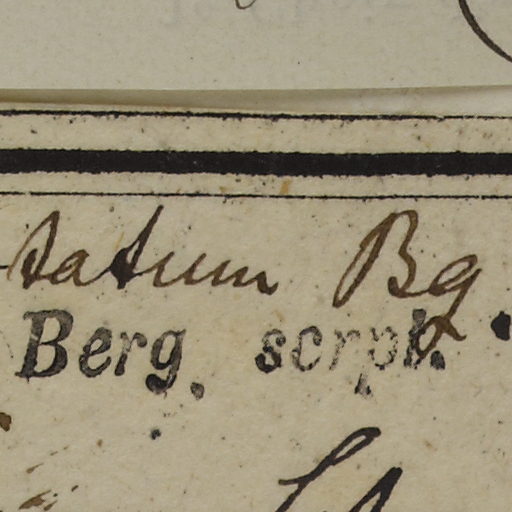 tatum Bg
Berg. scrpt.